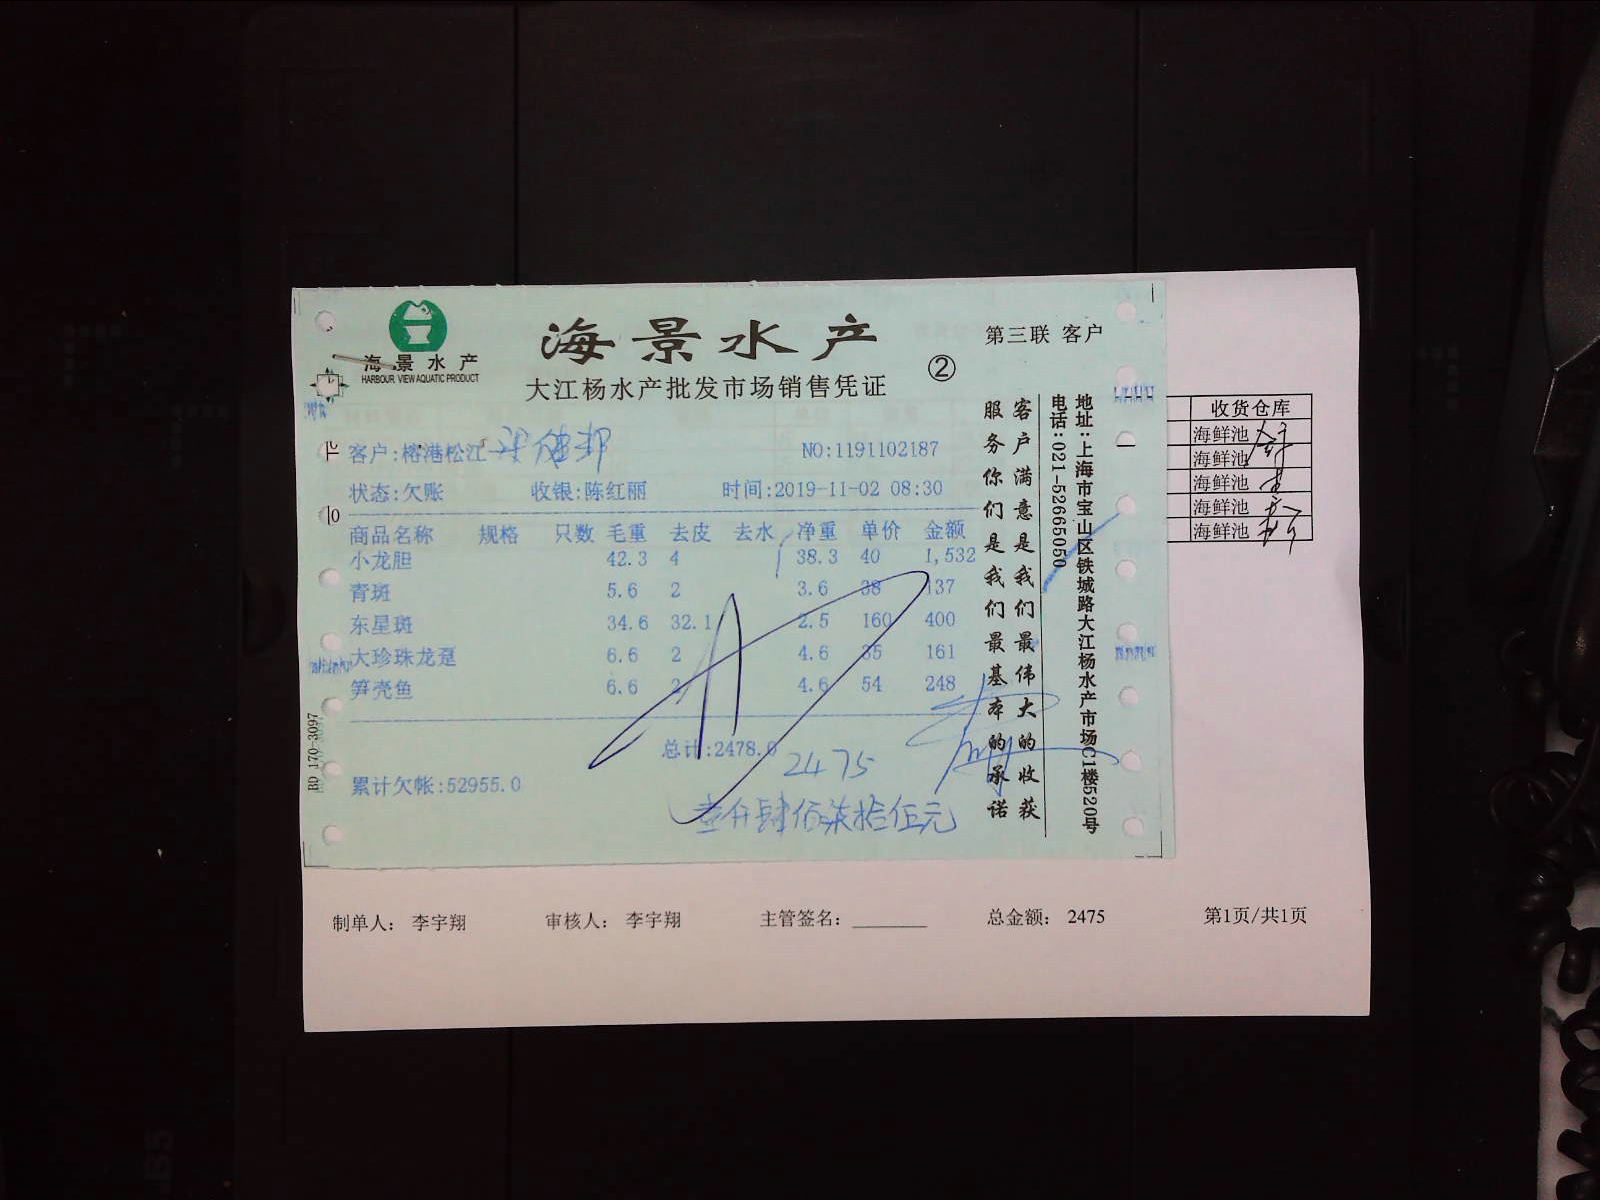 海景水产
HARBOUR VIEW AQUATIC PRODUCT
海景水产
大江杨水产批发市场销售凭证
②
第三联 客户
客户:榕港松江
NO:1191102187
状态:欠账 收银:陈红丽 时间:2019-11-02 08:30
商品名称 规格 只数 毛重 去皮 去水 净重 单价 金额
小龙胆 42.3 4 38.3 40 1,532
青斑 5.6 2 3.6 38 137
东星斑 34.6 32.1 2.5 160 400
大珍珠龙趸 6.6 2 4.6 35 161
笋壳鱼 6.6 2 4.6 54 248
总计:2478.0
2475
累计欠帐:52955.0
肆佰柒拾伍元
客户满意是我们最伟大的收获
服务你们是我们最基本的承诺
地址:上海市宝山区铁城路大江杨水产市场C1楼520号
电话:021-52665050
BD 170-3097
收货仓库
海鲜池
海鲜池
海鲜池
海鲜池
海鲜池
制单人: 李宇翔 审核人: 李宇翔 主管签名: 总金额: 2475 第1页/共1页